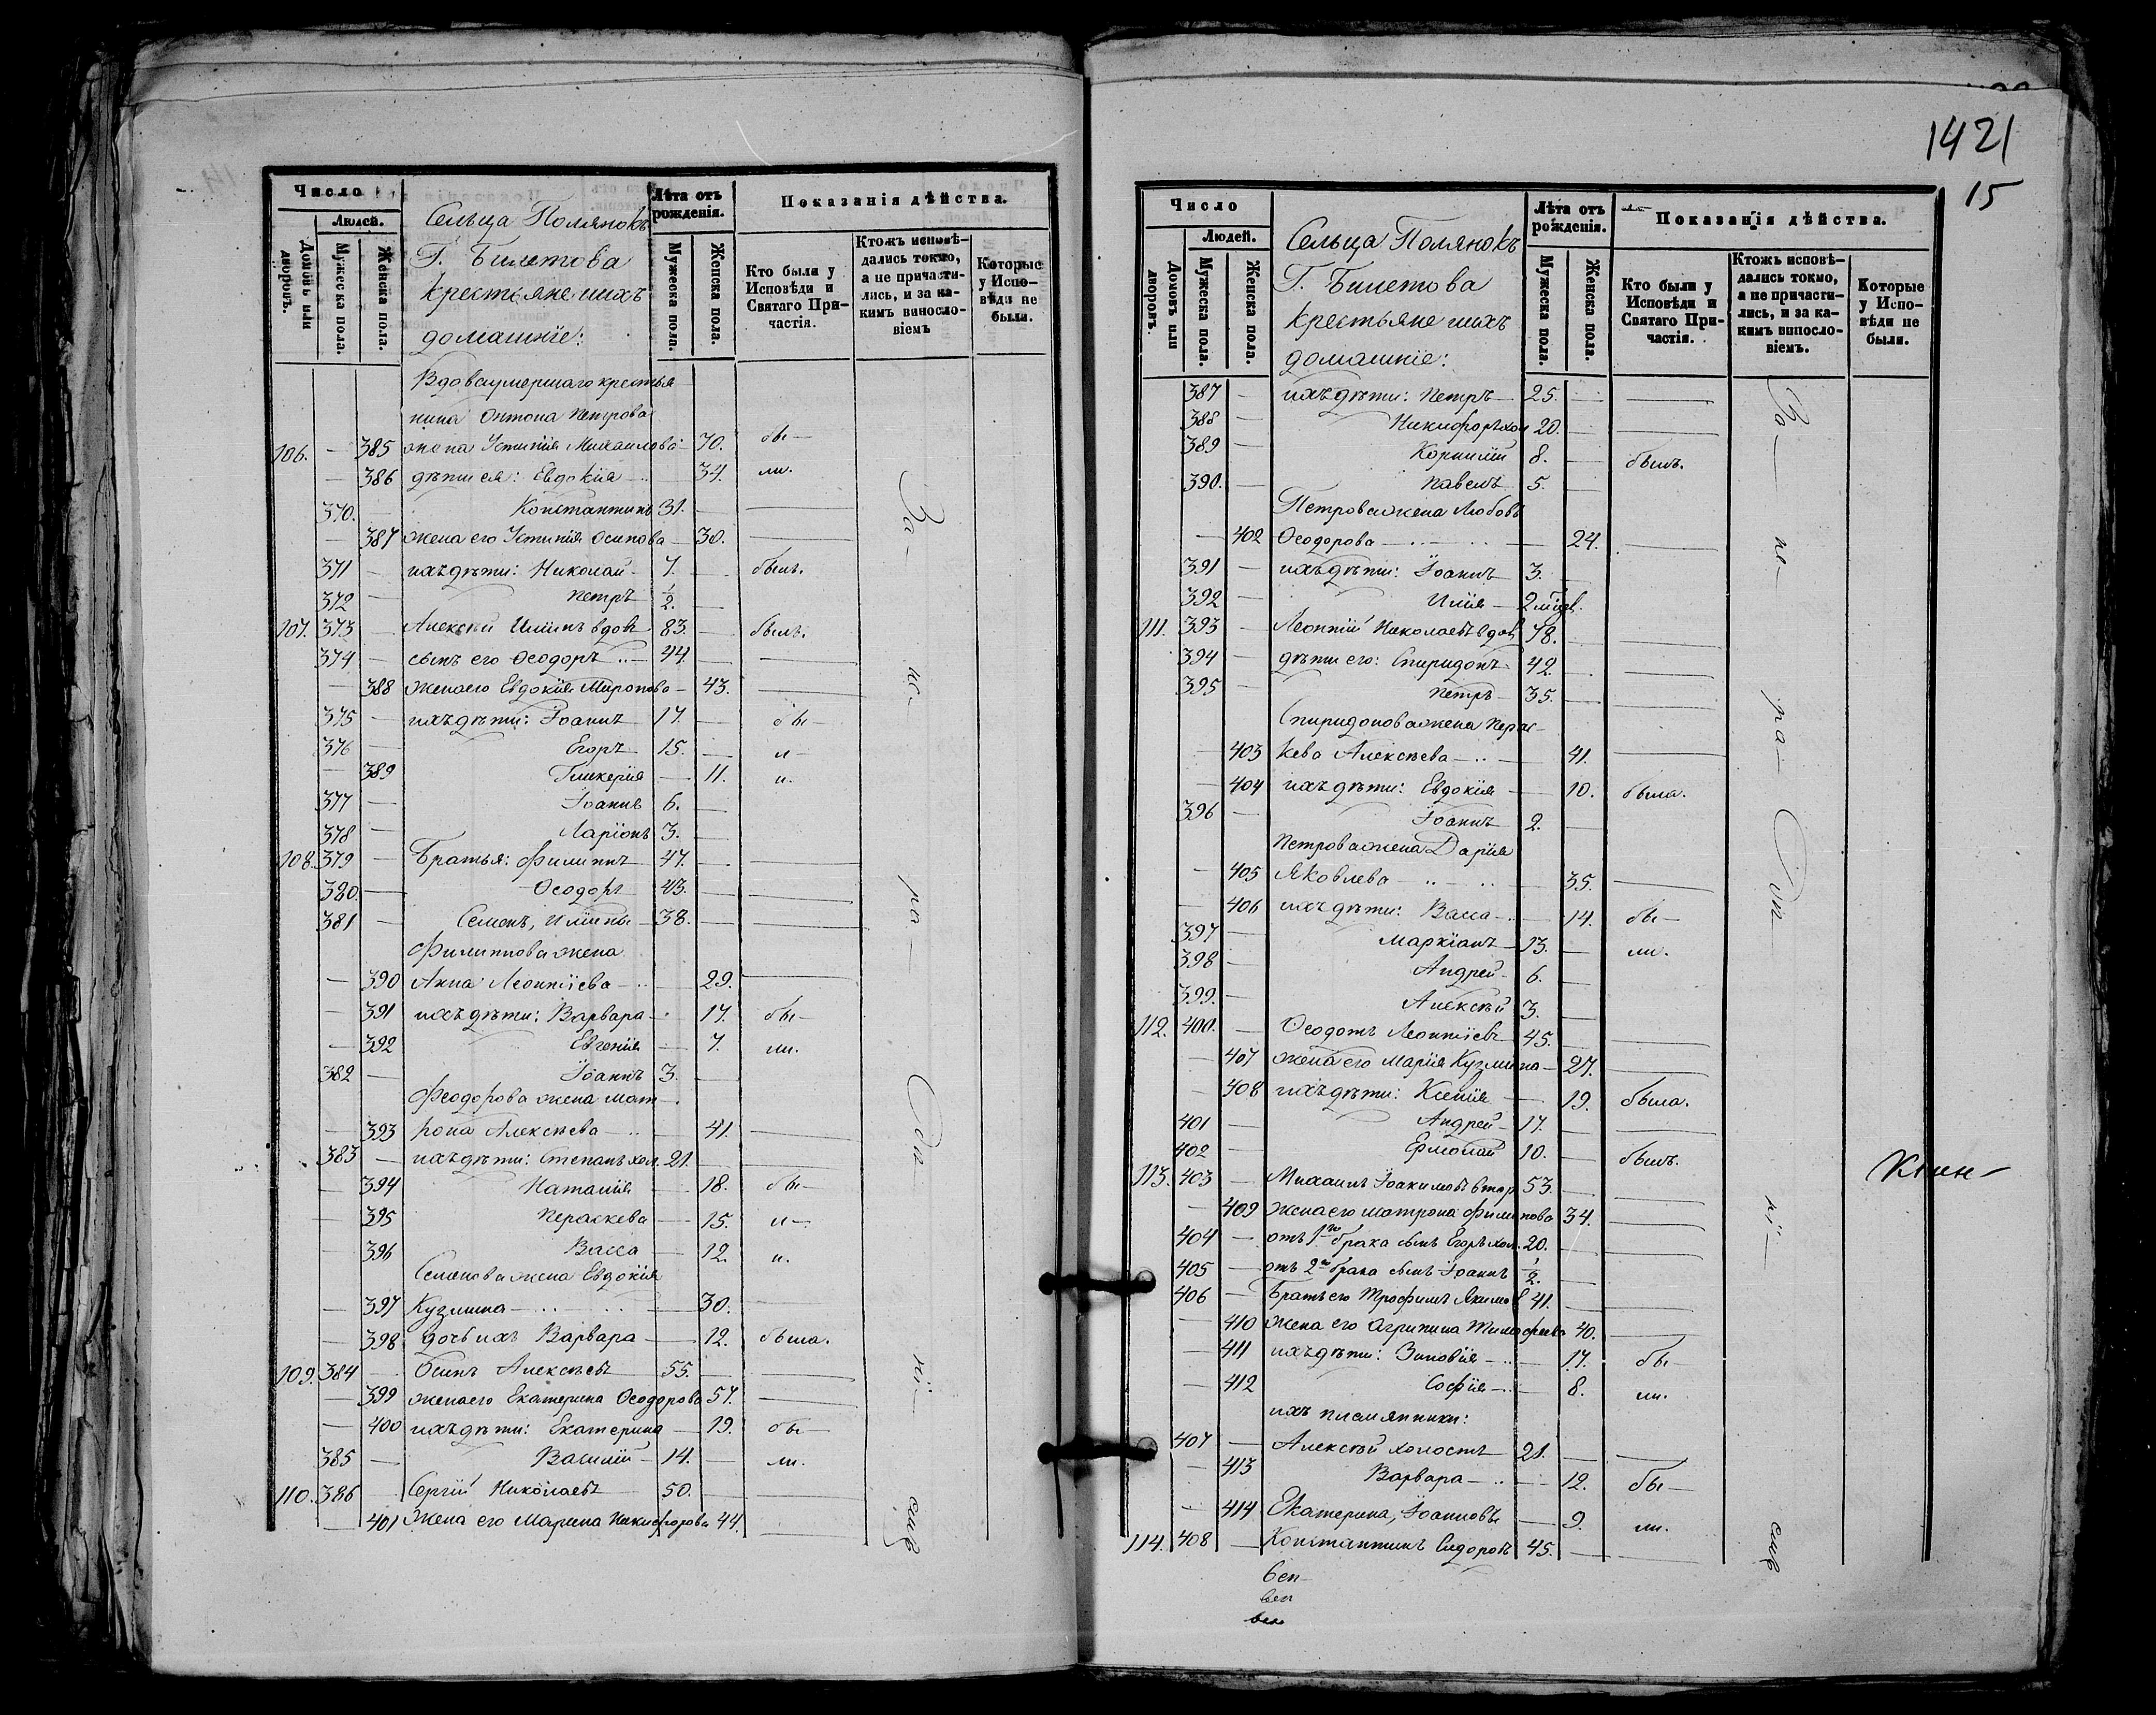 Число
Людей.
Домовъ или дворовъ.
Мужеска пола.
Женска пола.
Сельца Полянокъ
Г. Билетова
крестьяне и ихъ
домашніе:
Лѣта отъ рожденія.
Мужеска пола.
Женска пола.
Показанія дѣйства.
Кто были у Исповѣди и Святаго Причастія.
Ктожъ исповѣдались токмо, а не причастились, и за какимъ винословіемъ
Которые у Исповѣди не были.
Вдова умершаго крестья
нина Антона Петрова
106. — 385 жена Устинія Михаилова — 70. бы—
— 386 дѣти ея: Евдокія — 34. ли.
370. — Константинъ 31. —
— 387 жена его Устинія Осипова — 30.
371 — ихъ дѣти: Николай — 7. — былъ.
372 — Петръ 1/2. —
107. 373 — Алексѣй Илiинъ вдов 83. — былъ.
374 — сынъ его Ѳеодоръ — 44. —
— 388 жена его Евдокія Миронова — 43.
375 — ихъ дѣти: Іоаннъ 17. — бы—
376 — Егоръ 15. — л—
— 389 Гликерія — 11. и.
377 — Іоаннъ 6. —
378 — Ларіонъ 3. —
108. 379 — Братья: Филиппъ 47. —
380. — Ѳеодоръ 43. —
381 — Семенъ, Илiины — 38. —
Филиппова жена
— 390 Анна Леонтіева — 29.
— 391 ихъ дѣти: Варвара — 17. бы—
— 392 Евгенія — 7. ли.
382 — Іоаннъ 3. —
Феодорова жена Мат—
— 393 рона Алексѣева — 41.
383 — ихъ дѣти: Степанъ хол. 21. —
— 394 Наталія — 18. бы—
— 395 Пераскева — 15. л—
— 396 Васса — 12. и.
Семенова жена Евдокія
— 397 Кузмина — 30.
— 398 дочь ихъ Варвара — 12. была.
109. 384 — Осипъ Алексѣевъ 55. —
— 399 жена его Екатерина Ѳеодорова 57.
— 400 ихъ дѣти: Екатерина — 19. бы—
385 — Василій — 14. — ли.
110. 386 Сергій Николаевъ 50. —
— 401 Жена его Марина Никифорова 44.
За—
не—
ра—
1421
15
Число
Людей.
Домовъ или дворовъ.
Мужеска пола.
Женска пола.
Сельца Полянокъ
Г. Билетова
крестьяне и ихъ
домашніе:
Лѣта отъ рожденія.
Мужеска пола.
Женска пола.
Показанія дѣйства.
Кто были у Исповѣди и Святаго Причастія.
Ктожъ исповѣдались токмо, а не причастились, и за какимъ винословіемъ.
Которые у Исповѣди не были.
387 — ихъ дѣти: Петръ 25. —
388 — Никифоръ хол 20. —
389 — Корнилій 8. — былъ.
390. — Павелъ 5. —
Петрова жена Любовь
— 402 Ѳеодорова — 24.
391 — ихъ дѣти: Іоаннъ 3. —
392 — Илія — 2
111. 393 — Леонтій Николаевъ вдов 78. —
394 — дѣти его: Спиридонъ 42. —
395 — Петръ — 35. —
Спиридонова жена Перас—
— 403 кева Алексѣева — 41.
— 404 ихъ дѣти: Евдокія — 10. была.
396 — Іоаннъ 2. —
Петрова жена Дарія
— 405 Яковлева — 35.
— 406 ихъ дѣти: Васса — 14. бы—
397 — Маркіанъ — 13. — ли.
398 — Андрей — 6. —
399. — Алексѣй 3. —
112. 400. — Ѳеодотъ Леонтіевъ 45. —
— 407 жена его Марія Кузмина — 27.
— 408 ихъ дѣти: Ксенія — 19. была.
401 — Андрей — 17. —
402 — Ермолай 10. — былъ.
113. 403 — Михаилъ Іоакимовъ втор 53. —
— 409 жена его Матрона Филипова 34.
404 — отъ 1го брака сынъ Егоръ хол. 20. —
405 — отъ 2го брака сынъ Іоаннъ 1/2. —
406 — Братъ его Трофимъ Якимов 41. —
— 410 жена его Агрипина Тимофеева 40.
— 411 ихъ дѣти: Зиновія — 17. бы—
— 412 Софія — 8. ли.
ихъ племянники:
407 — Алексѣй холостъ 21. —
— 413 Варвара — 12. бы—
— 414 Екатерина, Іоанновы — 9. ли.
114. 408 — Константинъ Сидоровъ 45. —
За—
не—
ра—